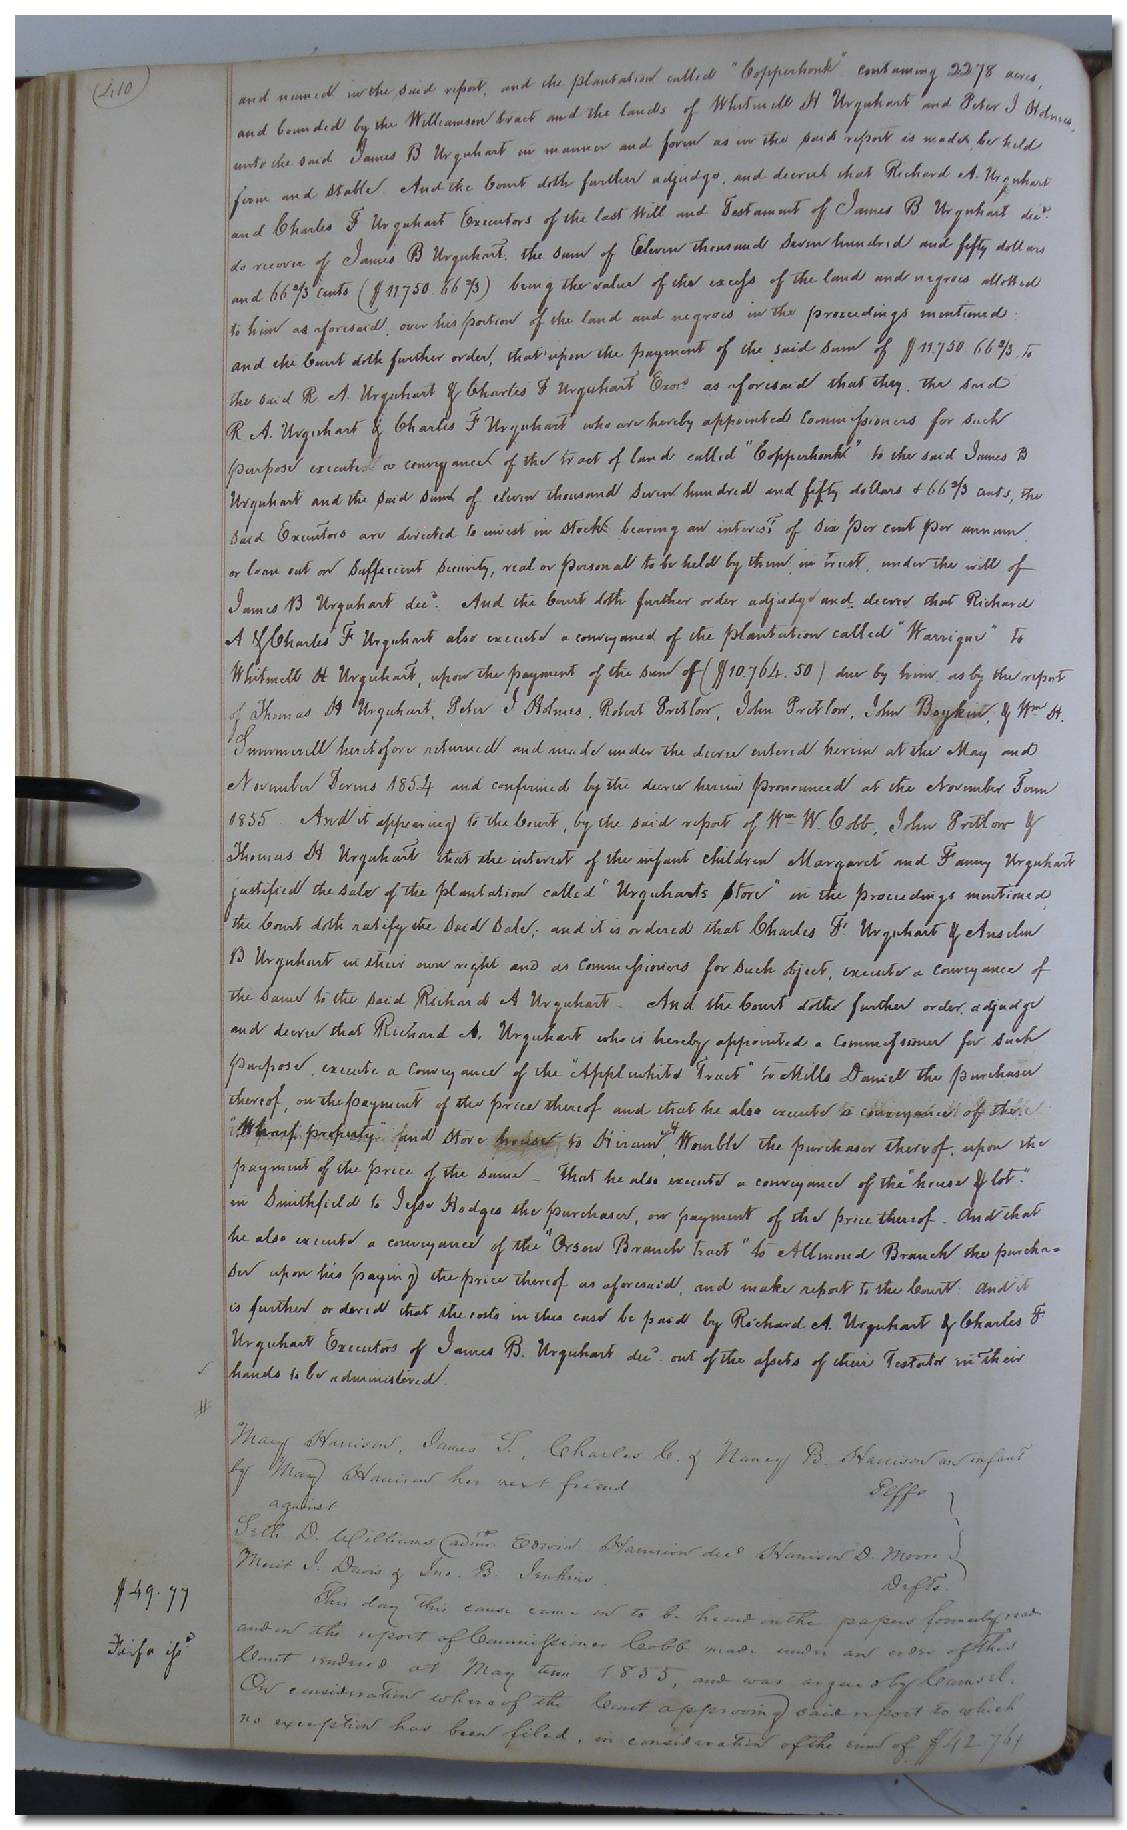 410
and named in the said report, and the plantation called "Copperhonk" containing 2278 acres,
and bounded by the Williamson tract and the lands of Whitmell H Urquhart and Peter J Holmes,
unto the said James B Urquhart in manner and form as in the said report is made, be held
firm and stable. And the Court doth further adjudge, and decree that Richard A. Urquhart
and Charles F Urquhart Executors of the last Will and Testament of James B Urquhart decd.
do recover of James B Urquhart, the sum of Eleven thousand seven hundred and fifty dollars
and 66 2/3 cents ($11750 66 2/3) being the value of the excess of the land and negroes allotted
to him as aforesaid, over his portion of the land and negroes in the proceedings mentioned:
and the Court doth further order, that upon the payment of the said sum of $11.750 66 2/3, to
the said R. A. Urquhart & Charles F Urquhart Exors as aforesaid that they, the said
R A. Urquhart & Charles F Urquhart who are hereby appointed Commissioners for such
purpose execute a conveyance of the tract of land called "Copperhonk" to the said James B
Urquhart and the said sum of eleven thousand seven hundred and fifty dollars & 66 2/3 cents, the
said Executors are directed to invest in stock bearing an interest of six per cent per annum,
or loan out on sufficient security, real or personal to be held by them, in trust, under the will of
James B Urquhart decd. And the Court doth further order adjudge and decree that Richard
A & Charles F Urquhart also execute a conveyance of the plantation called "Warrique" to
Whitmell H Urquhart, upon the payment of the sum of ($10.764.50) due by him, as by the report
of Thomas H Urquhart, Peter J Holmes, Robert Pretlow, John Pretlow, John Boykin, & Wm H.
Summerell heretofore returned and made under the decree entered herein at the May and
November Terms 1854 and confirmed by the decree herein pronounced at the November Term
1855. And it appearing to the Court, by the said report of Wm W. Cobb, John Pretlow &
Thomas H Urquhart that the interest of the infant children Margaret and Fanny Urquhart
justified the sale of the plantation called "Urquharts Store" in the proceedings mentioned
the Court doth ratify the said sale; and it is ordered that Charles F. Urquhart & Anselm
B Urquhart in their own right and as Commissioners for such object, execute a conveyance of
the same to the said Richard A Urquhart - And the Court doth further order, adjudge
and decree that Richard A. Urquhart who is hereby appointed a Commissioner for such
purpose, execute a conveyance of the "Applewhite Tract" to Mills Daniel the purchaser
thereof, on the payment of the price thereof and that he also execute a conveyance of the
"Wharf property" and store house, to Hiram Womble the purchaser thereof, upon the
payment of the price of the same - that he also execute a conveyance of the "house & lot"
in Smithfield to Jesse Hodges the purchaser, on payment of the price thereof. And that
he also execute a conveyance of the "Orson Branch tract" to Allmond Branch the purcha-
ser upon his paying the price thereof as aforesaid, and make report to the Court: And it
is further ordered that the costs in this case be paid by Richard A. Urquhart & Charles F.
Urquhart Executors of James B. Urquhart decd. out of the assets of their Testator in their
hands to be administered.
#
Mary Harrison, James S., Charles C. & Nancy B. Harrison an infant
by Mary Harrison her next friend Plffs
against
Seth D. Williams admr Edwin Harrison decd Harrison D. Moore
Merit J. Davis & Jno. B. Jenkins. Defts.
$49.77
This day this cause came on to be heard on the papers formerly read
and on the report of Commissioner Cobb made under an order of this
Court rendered at May term 1855, and was argued by Counsel.
On consideration whereof the Court approving said report to which
no exception has been filed, in consideration of the sum of $42 764